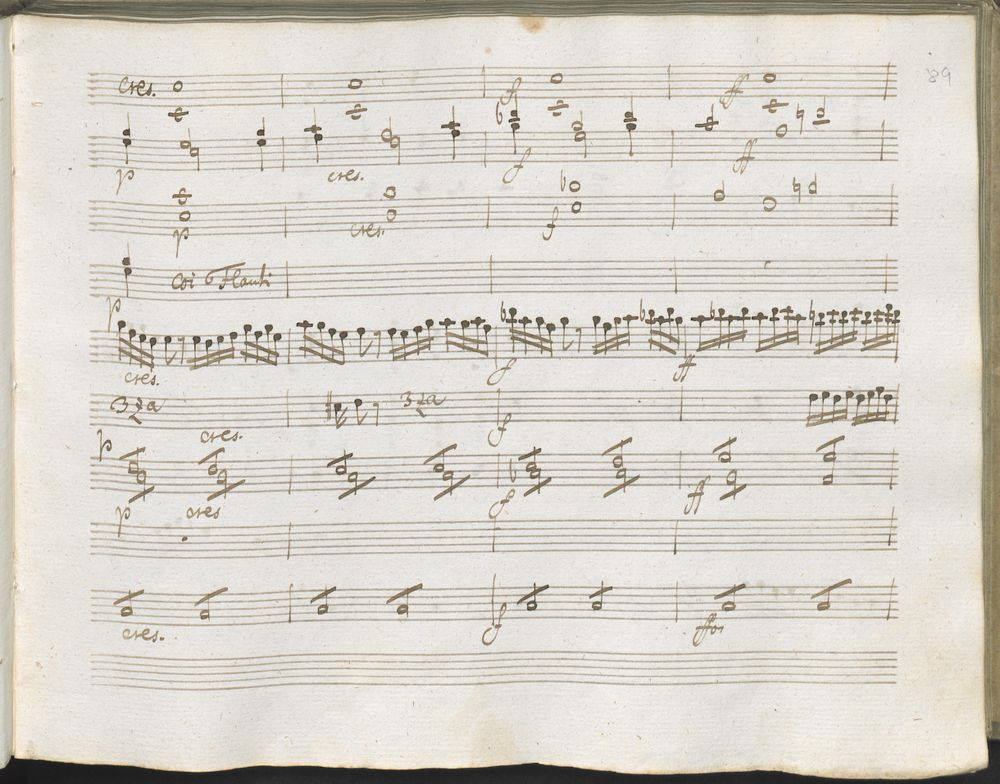 89
cres. f ff
p cres. f ff
p cres. f
Coi Flauti
p
cres. f ff
3za 3za
cres. f
p
p cres f ff
cres. f ffor